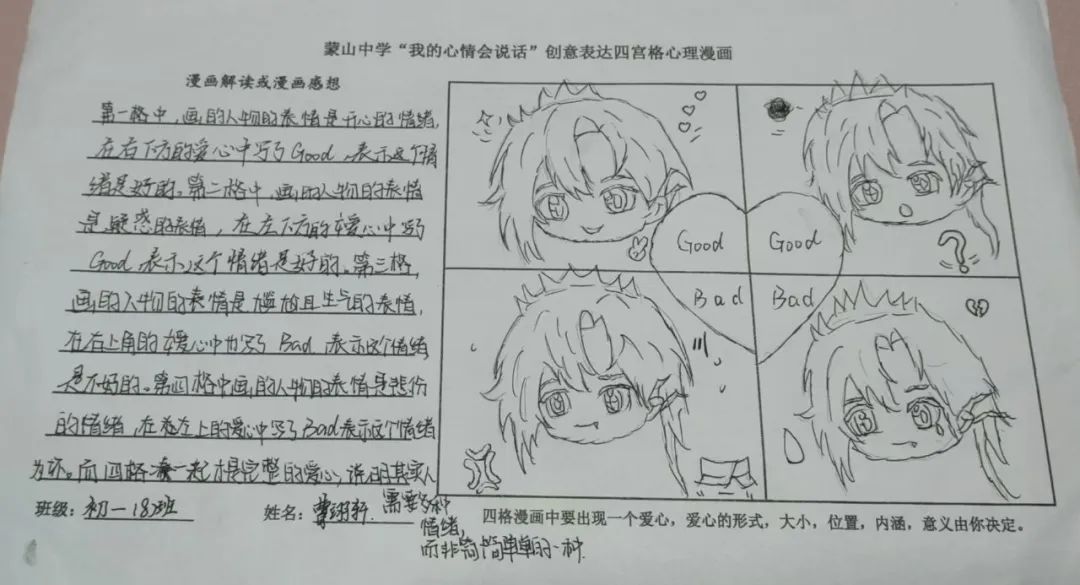 蒙山中学“我的心情会说话”创意表达四宫格心理漫画
漫画解读或漫画感想
第一格中,画的人物的表情是开心的情绪,
在右下方的爱心中写了Good,表示这个情
绪是好的。第二格中,画的人物的表情
是疑惑的表情,在左下方的爱心中写
Good,表示这个情绪是好的。第三格,
画的人物的表情是尴尬且生气的表情,
在右上角的爱心中也写了Bad,表示这个情绪
是不好的。第四格中画的人物的表情是悲伤
的情绪,在左上的爱心中写了Bad表示这个情绪
为坏。而四格凑一起才是完整的爱心,说明其实人
需要多种
情绪,
而非简简单单的一种.
班级:初一18班
姓名:
Good
Good
Bad
Bad
?
四格漫画中要出现一个爱心,爱心的形式,大小,位置,内涵,意义由你决定。